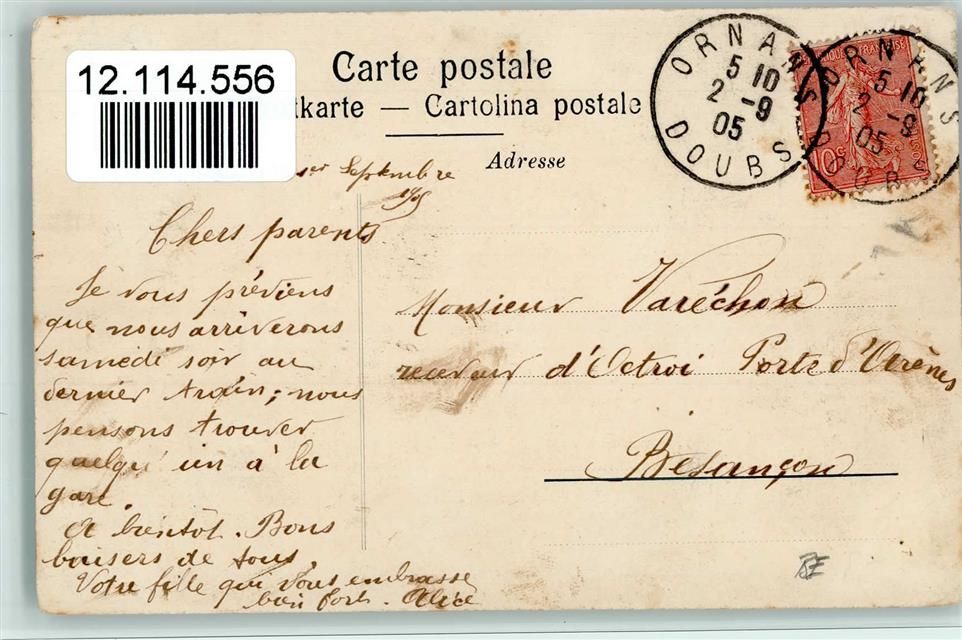 12.114.556
Carte postale
tkarte — Cartolina postale
Adresse
ORNANS
5 10
2 -9
05
DOUBS
ORNANS
5 10
2 -9
05
DOUBS
10c
1er Septembre
1905
Chers parents
Je vous préviens
que nous arriverons
samedi soir au
dernier train; nous
pensons trouver
quelqu'un à la
gare.
A bientôt. Bons
baisers de tous.
Votre fille qui vous embrasse
bien fort. Alice
Monsieur Varéchon
receveur d'Octroi Porte d'Arènes
Besançon